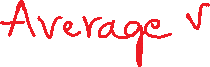 Average v